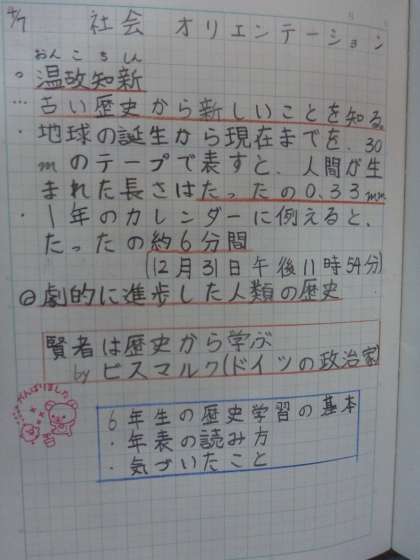 4/7 社会 オリエンテーション
おんこちしん
○温故知新
…古い歴史から新しいことを知る。
・地球の誕生から現在までを、30
mのテープで表すと、人間が生
まれた長さはたったの0.33mm
・1年のカレンダーに例えると、
たったの約6分間
(12月31日午後11時54分)
◎劇的に進歩した人類の歴史
賢者は歴史から学ぶ
by ビスマルク(ドイツの政治家)
がんばりました
6年生の歴史学習の基本
・年表の読み方
・気づいたこと